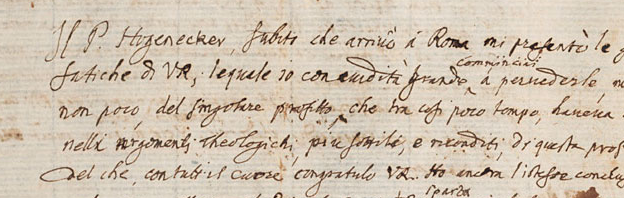 Il P. Hugenecker, subito che arrivò á Roma mi presentò le
fatiche di VR, lequale io con avidità grande cominciai á
non poco, del singolare profitto, che tra cosi poco tempo, haveva
nelli argomenti theologichi, piu sottili, e riconditi, di questa
Del che, con tutti il cuore congratulo VR. Ho ancora
sparsa